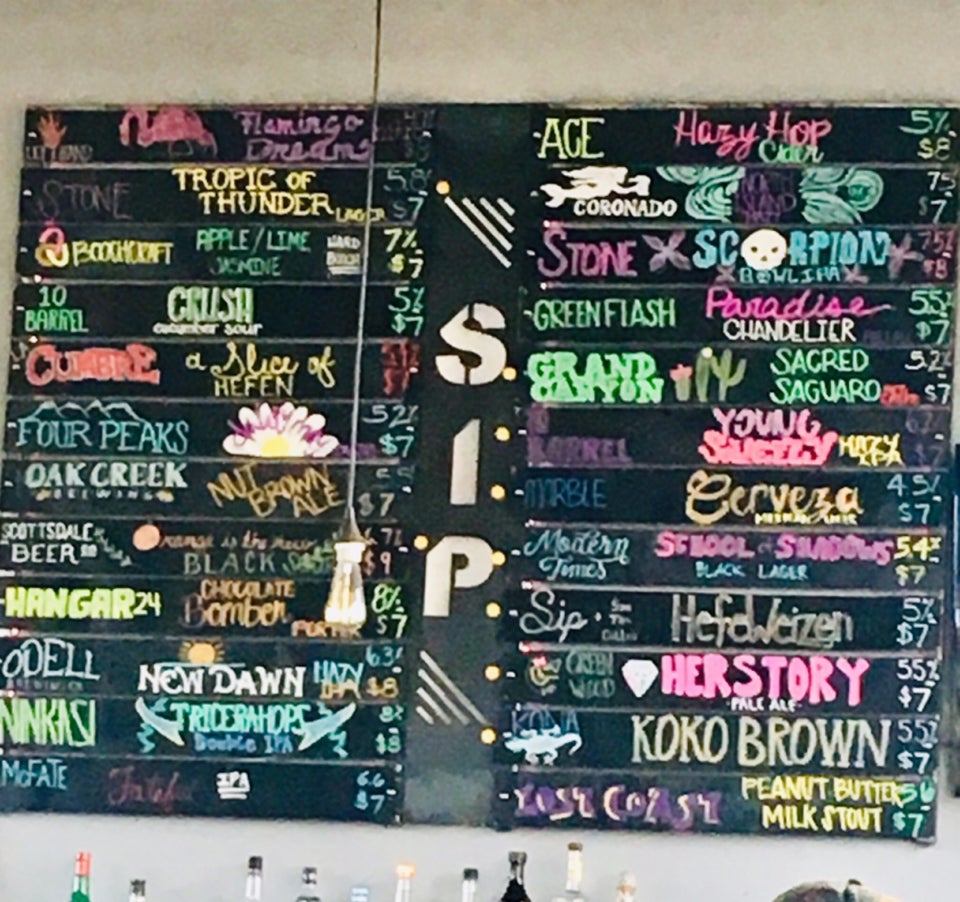 Flamingo
Dreams
STONE
TROPIC OF
THUNDER LAGER
5.8
$7
BOOCHCRAFT
APPLE/LIME
JASMINE
HARD
7%
$7
10
BARREL
CRUSH
cucumber sour
5%
$7
CUMBRE
a Slice of
HEFEN
FOUR PEAKS
5.2%
$7
OAK CREEK
BREWING
NUT BROWN
ALE
$7
SCOTTSDALE
BEER CO
Orange is the new
BLACK
$9
HANGAR 24
CHOCOLATE
Bomber
PORTER
8%
$7
ODELL
NEW DAWN
HAZY
IPA
6.3%
$8
NINKASI
TRICERAHOPS
Double IPA
8%
$8
McFATE
Fateful
IPA
6.6
$7
SIP
ACE
Hazy Hop
Cider
5%
$8
CORONADO
NORTH
ISLAND
75
$7
STONE
SCORPION
BOWL IPA
7.5%
$8
GREEN FLASH
Paradise
CHANDELIER
5.5%
$7
GRAND
CANYON
SACRED
SAGUARO
5.2%
$7
BARREL
YOUNG
HAZY
MARBLE
Cerveza
4.5%
$7
Modern
Times
SCHOOL of SHADOWS
BLACK LAGER
5.4%
$7
Sip
Hefeweizen
5%
$7
GREEN
WOOD
HERSTORY
PALE ALE
5.5%
$7
KONA
KOKO BROWN
5.5%
$7
PEANUT BUTTER
MILK STOUT
$7